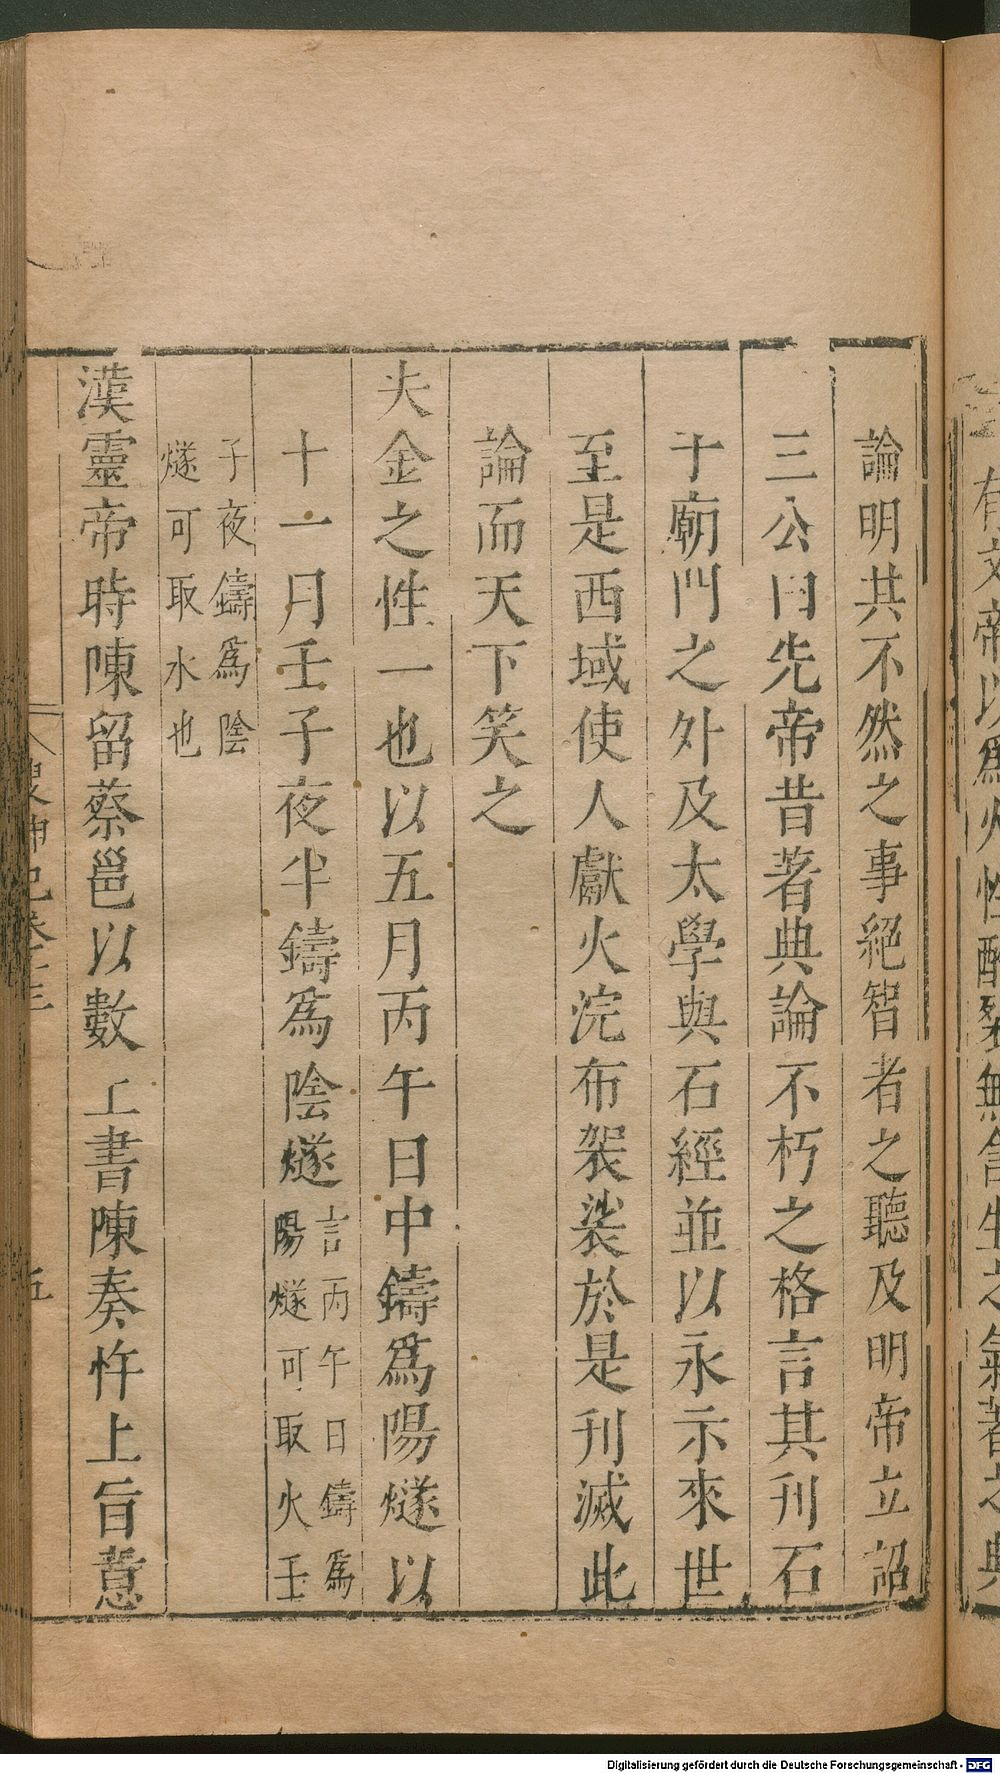 有文帝以爲火性酷裂無含生之氣著之典
論明其不然之事絕智者之聽及明帝立詔
三公曰先帝昔著典論不朽之格言其刊石
于廟門之外及太學與石經並以永示來世
至是西域使人獻火浣布袈裟於是刊滅此
論而天下笑之
夫金之性一也以五月丙午日中鑄爲陽燧以
十一月壬子夜半鑄爲陰燧言丙午日鑄爲
陽燧可取火壬
子夜鑄爲陰
燧可取水也
漢靈帝時陳留蔡邕以數上書陳奏忤上旨意
搜神記卷十三
五
Digitalisierung gefördert durch die Deutsche Forschungsgemeinschaft - DFG